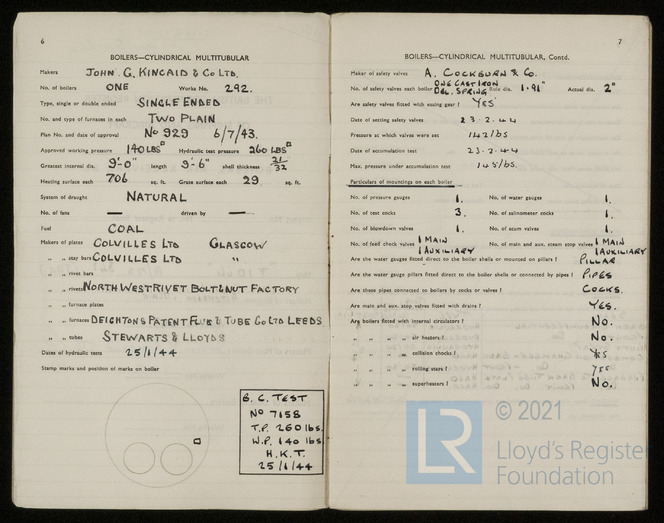 6
BOILERS—CYLINDRICAL MULTITUBULAR
Makers JOHN G. KINCAID & CO LTD.
No. of boilers ONE Works No. 292.
Type, single or double ended SINGLE ENDED
No. and type of furnaces in each TWO PLAIN
Plan No. and date of approval No 929 6/7/43.
Approved working pressure 140 LBS□" Hydraulic test pressure 260 LBS□"
Greatest internal dia. 9'-0" length 9'-6" shell thickness 21/32
Heating surface each 706 sq. ft. Grate surface each 29 sq. ft.
System of draught NATURAL
No. of fans — driven by —
Fuel COAL
Makers of plates COLVILLES LTD GLASGOW
„ „ stay bars COLVILLES LTD "
„ „ rivet bars
„ „ rivets NORTH WEST RIVET BOLT & NUT FACTORY
„ „ furnace plates
„ „ furnaces DEIGHTONS PATENT FLUE & TUBE CO LTD LEEDS
„ „ tubes STEWARTS & LLOYDS
Dates of hydraulic tests 25/1/44
Stamp marks and position of marks on boiler
B. C. TEST
No 7158
T.P. 260 lbs.
W.P. 140 lbs
H.K.T.
25/1/44
7
BOILERS—CYLINDRICAL MULTITUBULAR, Contd.
Maker of safety valves A. COCKBURN & CO.
No. of safety valves each boiler ONE CAST IRON DBL. SPRING Rule dia. 1.91" Actual dia. 2"
Are safety valves fitted with easing gear? YES
Date of setting safety valves 23.2.44
Pressure at which valves were set 142 lbs
Date of accumulation test 23.2.44
Max. pressure under accumulation test 145 lbs.
Particulars of mountings on each boiler
No. of pressure gauges 1. No. of water gauges 1.
No. of test cocks 3. No. of salinometer cocks 1.
No. of blowdown valves 1. No. of scum valves 1.
No. of feed check valves 1 MAIN 1 AUXILIARY No. of main and aux. steam stop valves 1 MAIN 1 AUXILIARY
Are the water gauges fitted direct to the boiler shells or mounted on pillars? PILLAR
Are the water gauge pillars fitted direct to the boiler shells or connected by pipes? PIPES
Are these pipes connected to boilers by cocks or valves? COCKS.
Are main and aux. stop valves fitted with drains? YES.
Are boilers fitted with internal circulators? No.
„ „ „ „ air heaters? No.
„ „ „ „ collision chocks? YES
„ „ „ „ rolling stays? YES
„ „ „ „ superheaters? No.
LR
© 2021
Lloyd's Register
Foundation